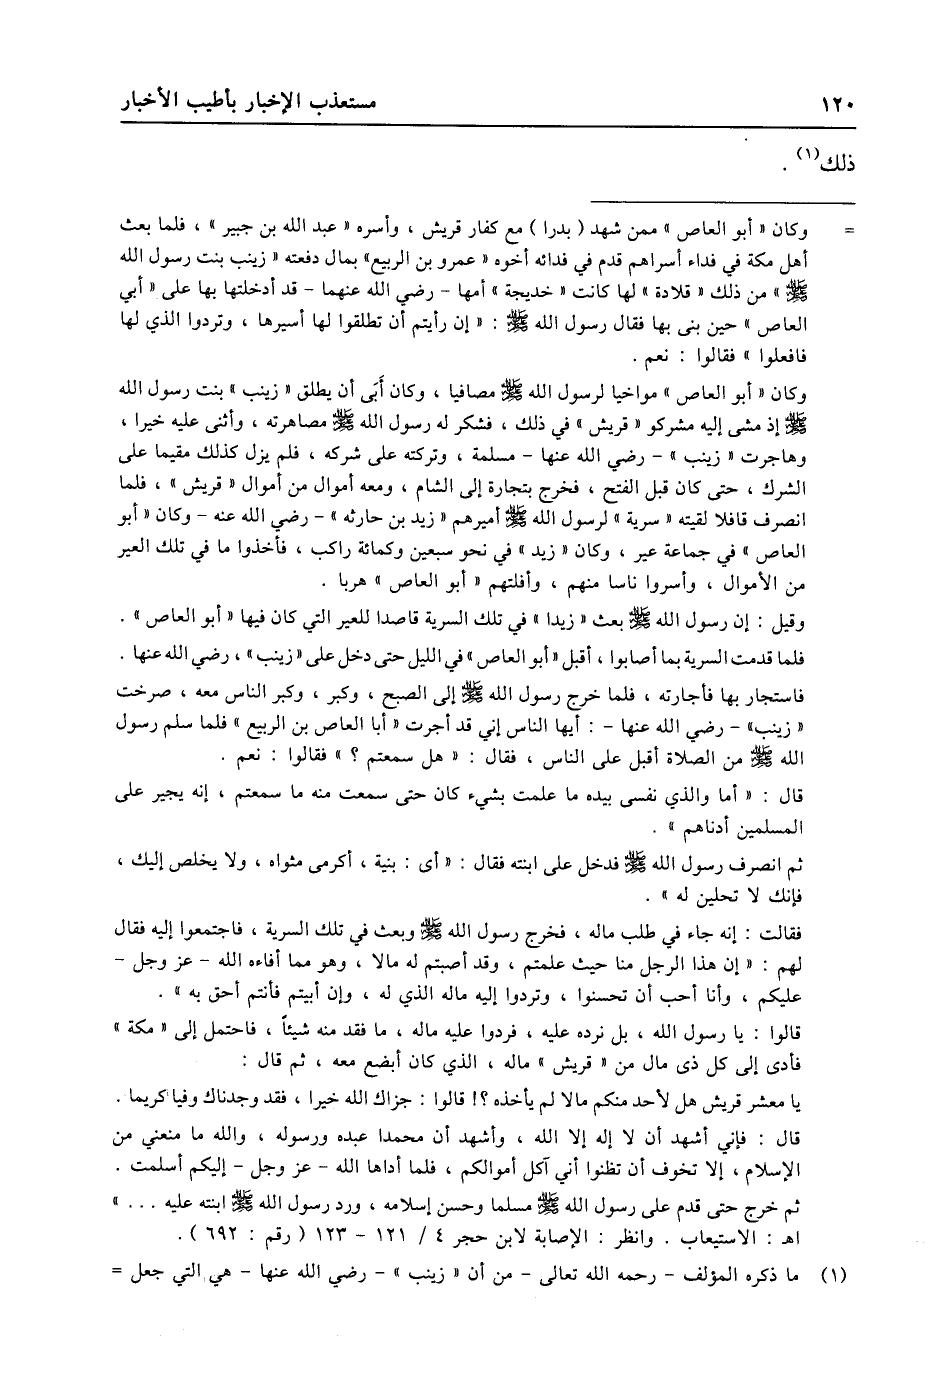 ١٢٠ مستعذب الإخبار بأطيب الأخبار
ذلك(١) .
= وكان « أبو العاص » ممن شهد ( بدرا ) مع كفار قريش ، وأسره « عبد الله بن جبير » ، فلما بعث
أهل مكة في فداء أسراهم قدم في فدائه أخوه « عمرو بن الربيع» بمال دفعته « زينب بنت رسول الله
ﷺ » من ذلك « قلادة » لها كانت « خديجة » أمها - رضي الله عنهما - قد أدخلتها بها على « أبي
العاص » حين بنى بها فقال رسول الله ﷺ : « إن رأيتم أن تطلقوا لها أسيرها ، وتردوا الذي لها
فافعلوا » فقالوا : نعم .
وكان « أبو العاص » مواخيا لرسول الله ﷺ مصافيا ، وكان أَبَى أن يطلق « زينب » بنت رسول الله
ﷺ إذ مشى إليه مشركو « قريش » في ذلك ، فشكر له رسول الله ﷺ مصاهرته ، وأثنى عليه خيرا ،
وهاجرت « زينب » - رضي الله عنها - مسلمة ، وتركته على شركه ، فلم يزل كذلك مقيما على
الشرك ، حتى كان قبل الفتح ، فخرج بتجارة إلى الشام ، ومعه أموال من أموال « قريش » ، فلما
انصرف قافلا لقيته « سرية » لرسول الله ﷺ أميرهم « زيد بن حارثه » - رضي الله عنه - وكان « أبو
العاص » في جماعة عير ، وكان « زيد » في نحو سبعين وكمائة راكب ، فأخذوا ما في تلك العير
من الأموال ، وأسروا ناسا منهم ، وأفلتهم « أبو العاص » هربا .
وقيل : إن رسول الله ﷺ بعث « زيدا » في تلك السرية قاصدا للعير التي كان فيها « أبو العاص » .
فلما قدمت السرية بما أصابوا ، أقبل « أبو العاص » في الليل حتى دخل على « زينب » ، رضي الله عنها .
فاستجار بها فأجارته ، فلما خرج رسول الله ﷺ إلى الصبح ، وكبر ، وكبر الناس معه ، صرخت
« زينب» - رضي الله عنها - : أيها الناس إني قد أجرت « أبا العاص بن الربيع » فلما سلم رسول
الله ﷺ من الصلاة أقبل على الناس ، فقال : « هل سمعتم ؟ » فقالوا : نعم .
قال : « أما والذي نفسى بيده ما علمت بشيء كان حتى سمعت منه ما سمعتم ، إنه يجير على
المسلمين أدناهم » .
ثم انصرف رسول الله ﷺ فدخل على ابنته فقال : « أى : بنية ، أكرمى مثواه ، ولا يخلص إليك ،
فإنك لا تحلين له » .
فقالت : إنه جاء في طلب ماله ، فخرج رسول الله ﷺ وبعث في تلك السرية ، فاجتمعوا إليه فقال
لهم : « إن هذا الرجل منا حيث علمتم ، وقد أصبتم له مالا ، وهو مما أفاءه الله - عز وجل -
عليكم ، وأنا أحب أن تحسنوا ، وتردوا إليه ماله الذي له ، وإن أبيتم فأنتم أحق به » .
قالوا : يا رسول الله ، بل نرده عليه ، فردوا عليه ماله ، ما فقد منه شيئاً ، فاحتمل إلى « مكة »
فأدى إلى كل ذى مال من « قريش » ماله ، الذي كان أبضع معه ، ثم قال :
يا معشر قريش هل لأحد منكم مالا لم يأخذه ؟! قالوا : جزاك الله خيرا ، فقد وجدناك وفيا كريما .
قال : فإني أشهد أن لا إله إلا الله ، وأشهد أن محمدا عبده ورسوله ، والله ما منعني من
الإسلام ، إلا تخوف أن تظنوا أني آكل أموالكم ، فلما أداها الله - عز وجل - إليكم أسلمت .
ثم خرج حتى قدم على رسول الله ﷺ مسلما وحسن إسلامه ، ورد رسول الله ﷺ ابنته عليه ... »
اهـ : الاستيعاب . وانظر : الإصابة لابن حجر ٤ / ١٢١ - ١٢٣ ( رقم : ٦٩٢ ) .
(١) ما ذكره المؤلف - رحمه الله تعالى - من أن « زينب » - رضي الله عنها - هي التي جعل =